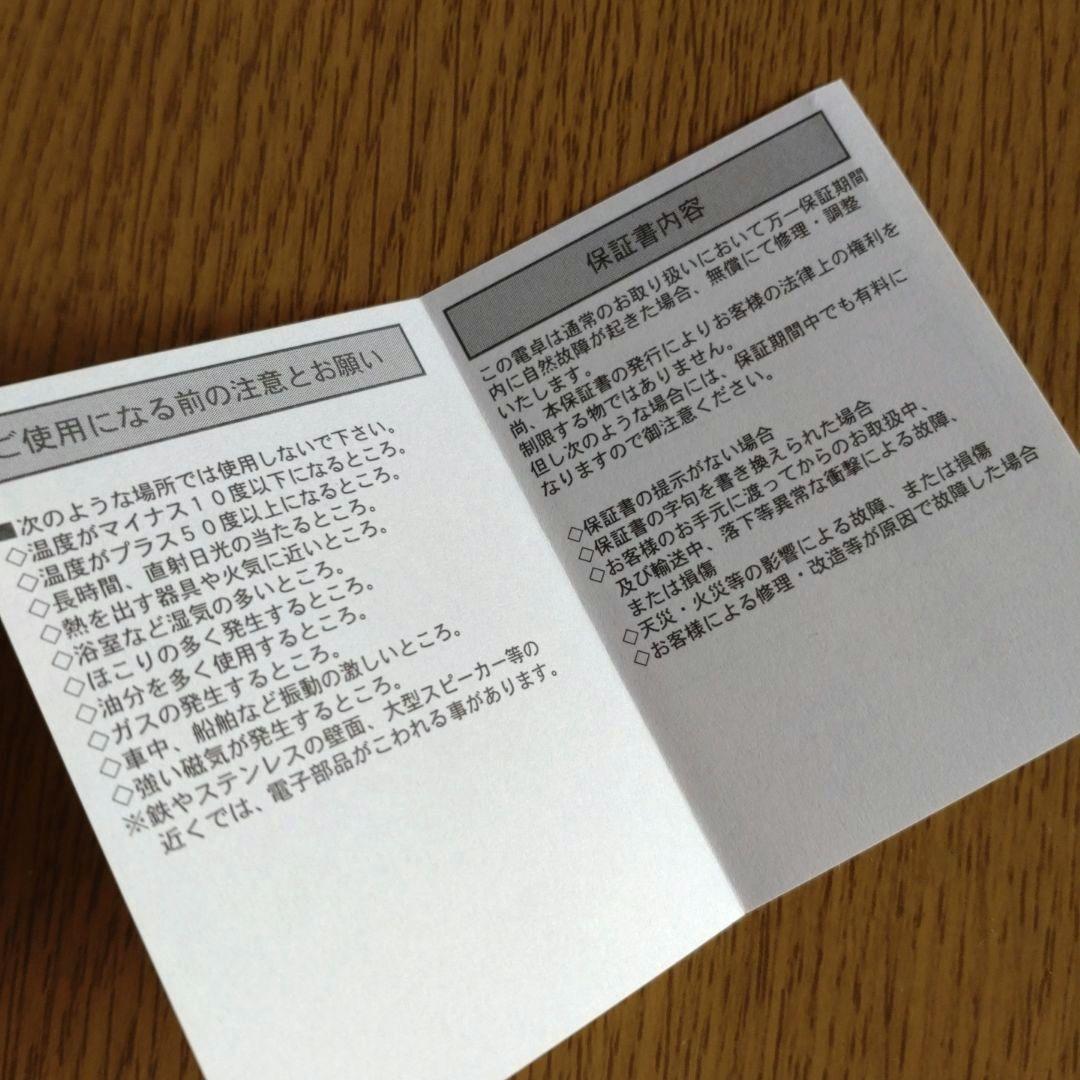 ご使用になる前の注意とお願い
■次のような場所では使用しないで下さい。
◇温度がマイナス10度以下になるところ。
◇温度がプラス50度以上になるところ。
◇長時間、直射日光の当たるところ。
◇熱を出す器具や火気に近いところ。
◇浴室など湿気の多いところ。
◇ほこりの多く発生するところ。
◇油分を多く使用するところ。
◇ガスの発生するところ。
◇車中、船舶など振動の激しいところ。
◇強い磁気が発生するところ。
※鉄やステンレスの壁面、大型スピーカー等の
近くでは、電子部品がこわれる事があります。
保証書内容
この電卓は通常のお取り扱いにおいて万一保証期間
内に自然故障が起きた場合、無償にて修理・調整
いたします。
尚、本保証書の発行によりお客様の法律上の権利を
制限する物ではありません。
但し次のような場合には、保証期間中でも有料に
なりますので御注意ください。
◇保証書の提示がない場合
◇保証書の字句を書き換えられた場合
◇お客様のお手元に渡ってからのお取扱中、
及び輸送中、落下等異常な衝撃による故障、
または損傷
◇天災・火災等の影響による故障、または損傷
◇お客様による修理・改造等が原因で故障した場合